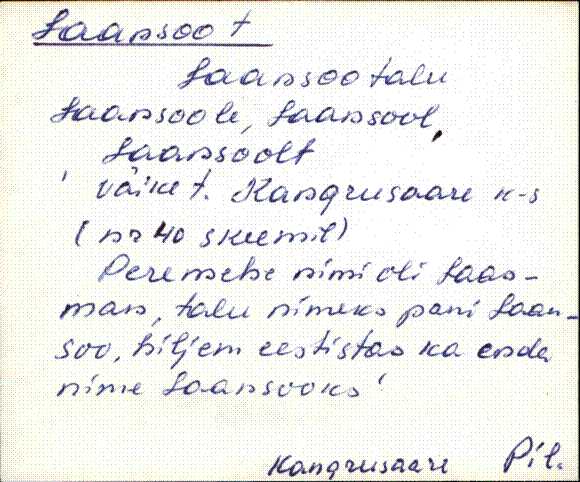 Laansoo t
Laansoo talu
Laansoole, Laansool,
Laansoolt
' väike t. Kangrusaare k-s
(nr 40 skeemil)
Peremehe nimi oli Laas-
man, talu nimeks pani Laan-
soo, hiljem eestistas ka enda
nime Laansooks'
Kangrusaare Pil.